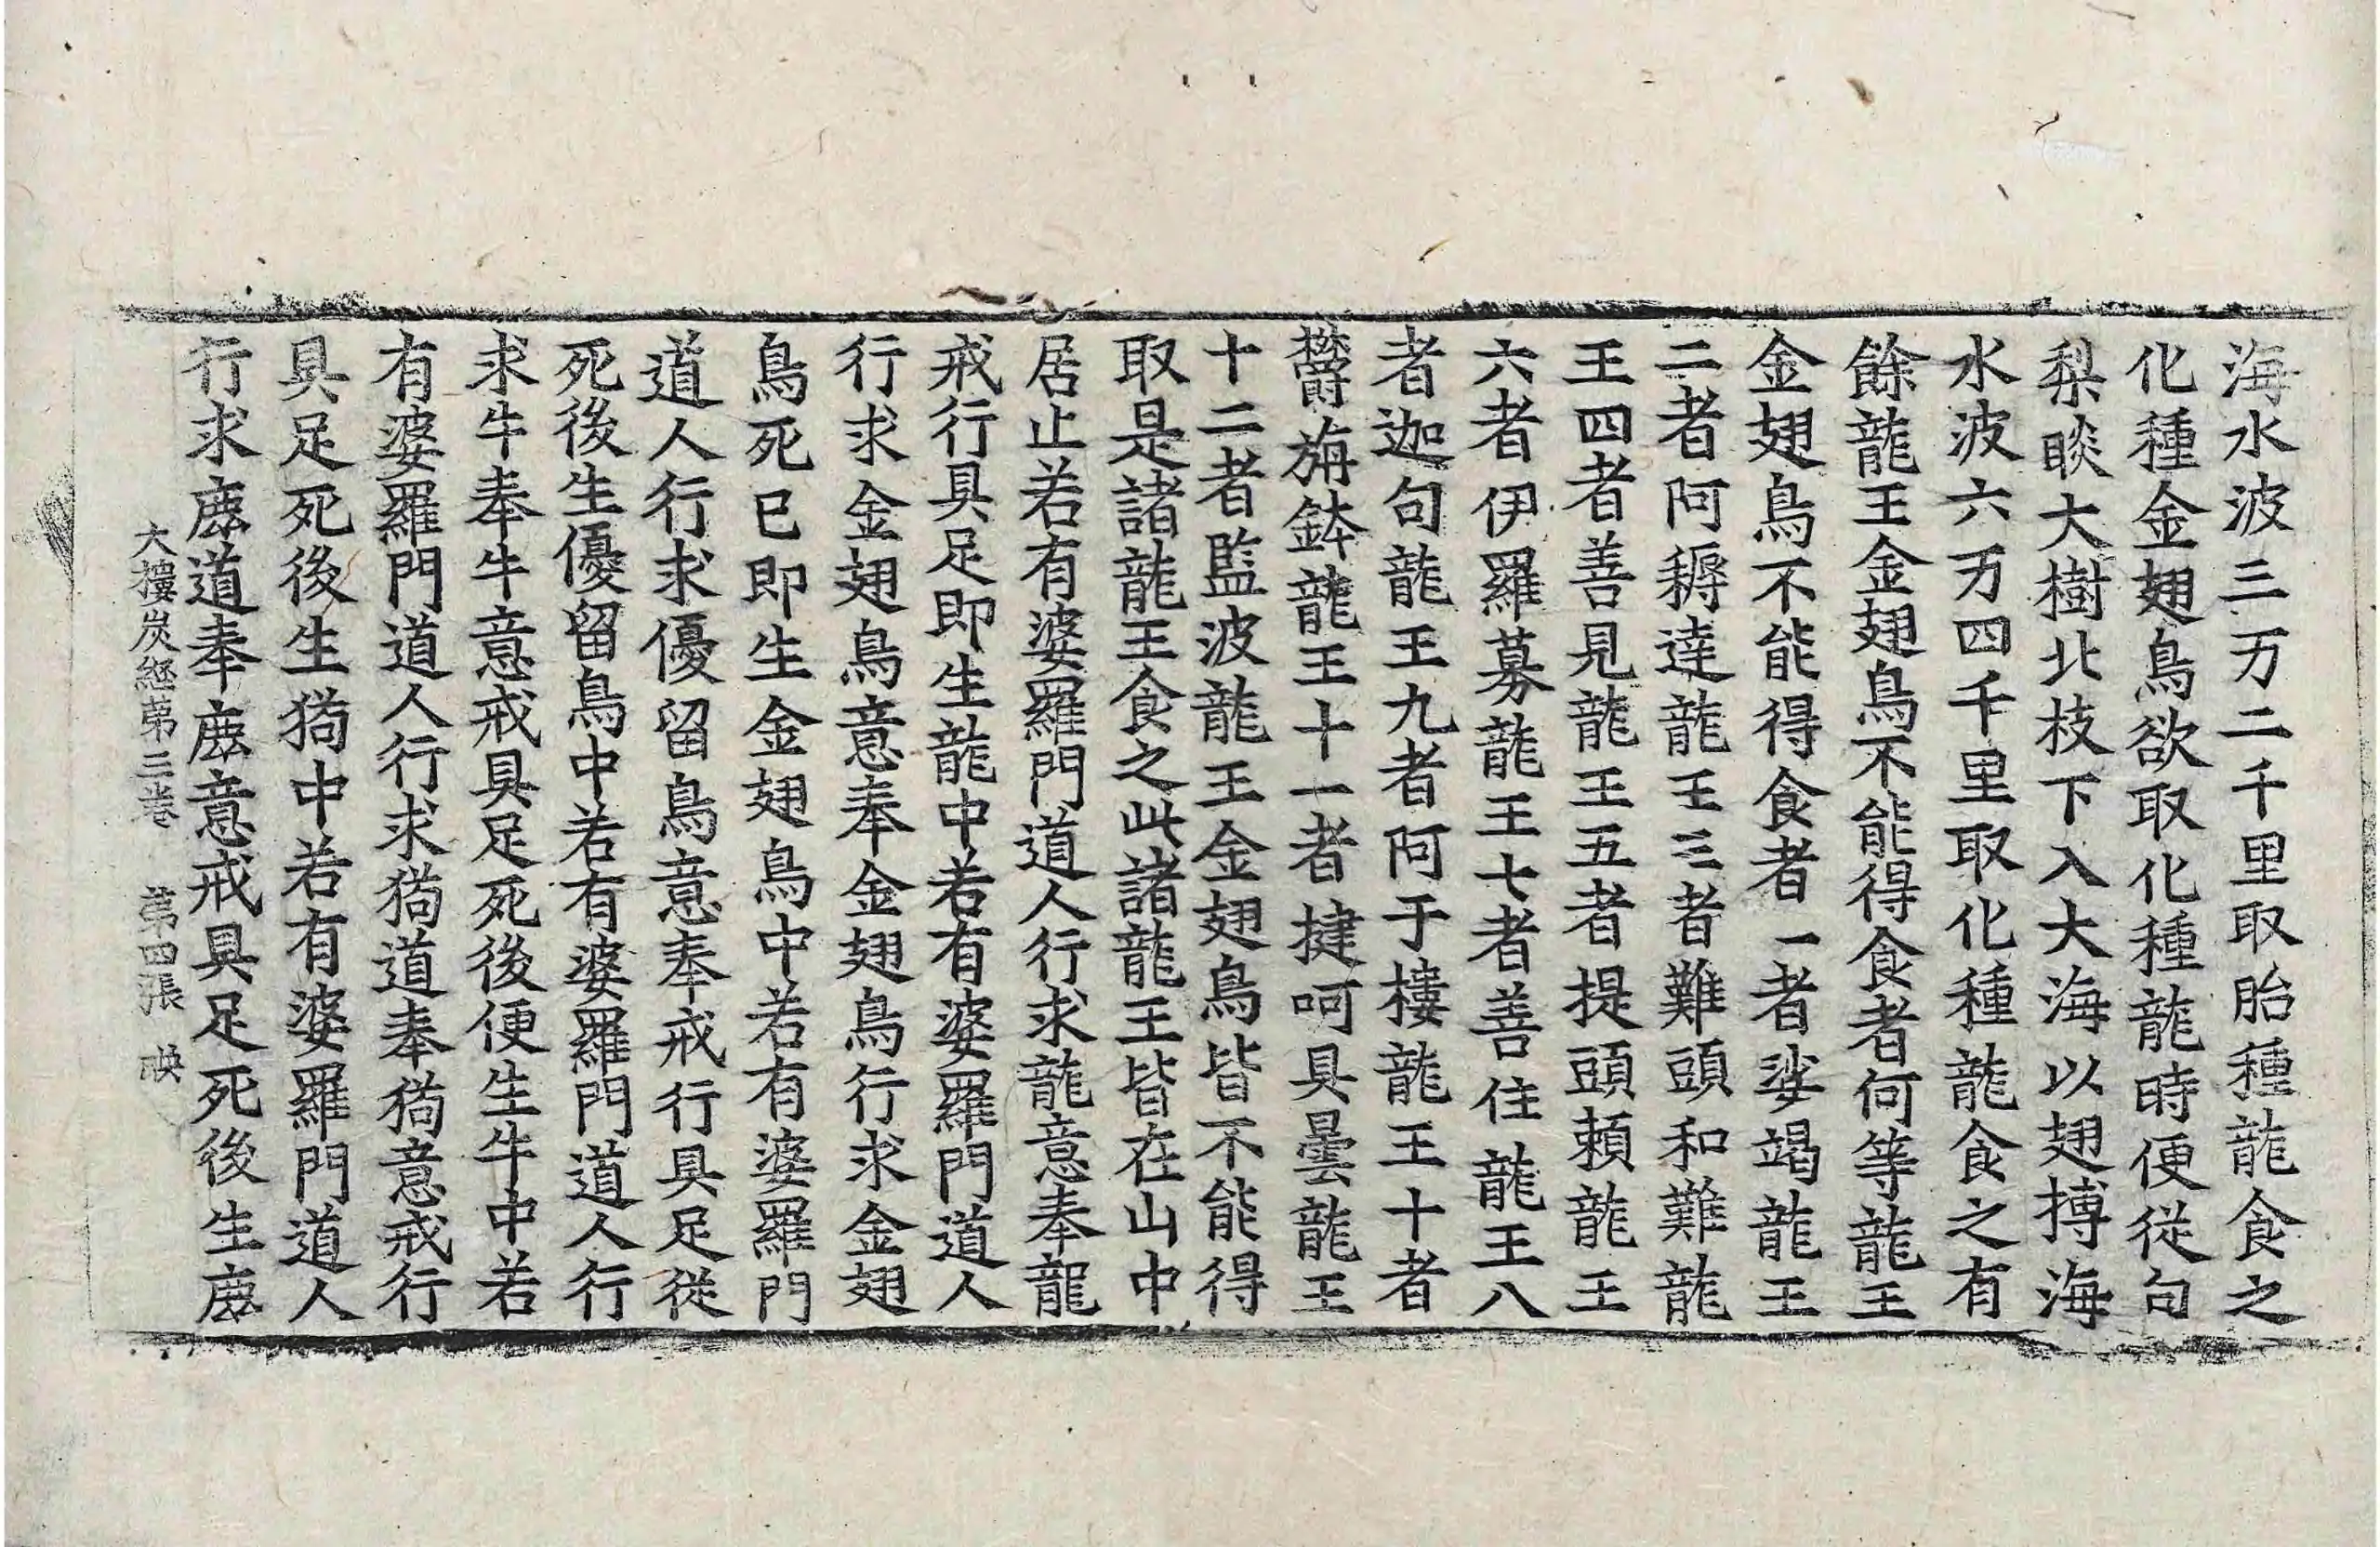 海水波三万二千里取胎種龍食之
化種金翅鳥欲取化種龍時便從句
梨睒大樹北枝下入大海以翅搏海
水波六万四千里取化種龍食之有
餘龍王金翅鳥不能得食者何等龍王
金翅鳥不能得食者一者娑竭龍王
二者阿耨達龍王三者難頭和難龍
王四者善見龍王五者提頭賴龍王
六者伊羅募龍王七者善住龍王八
者迦句龍王九者阿于樓龍王十者
欝旃鉢龍王十一者揵呵具曇龍王
十二者監波龍王金翅鳥皆不能得
取是諸龍王食之此諸龍王皆在山中
居止若有婆羅門道人行求龍意奉龍
戒行具足即生龍中若有婆羅門道人
行求金翅鳥意奉金翅鳥行求金翅
鳥死已即生金翅鳥中若有婆羅門
道人行求優留鳥意奉戒行具足從
死後生優留鳥中若有婆羅門道人行
求牛奉牛意戒具足死後便生牛中若
有婆羅門道人行求猗道奉猗意戒行
具足死後生猗中若有婆羅門道人
行求鹿道奉鹿意戒具足死後生鹿
大樓炭經第三卷 第四張 映